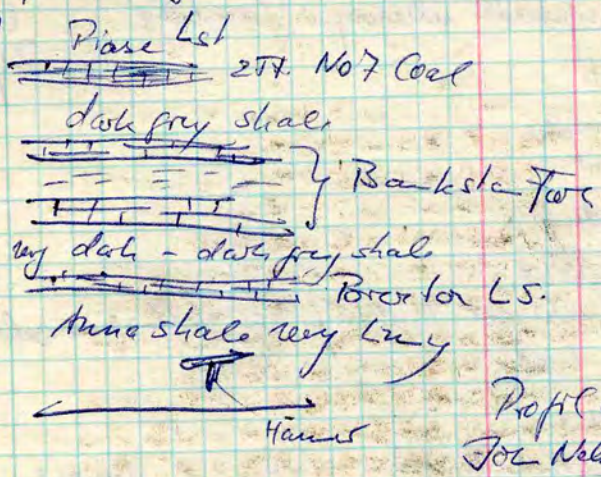 Piase Lst
2 No 7 Coal
dark grey shale
Bankston Fork
very dark - dark grey shale
LS.
Anna shale very limy
Profil
John